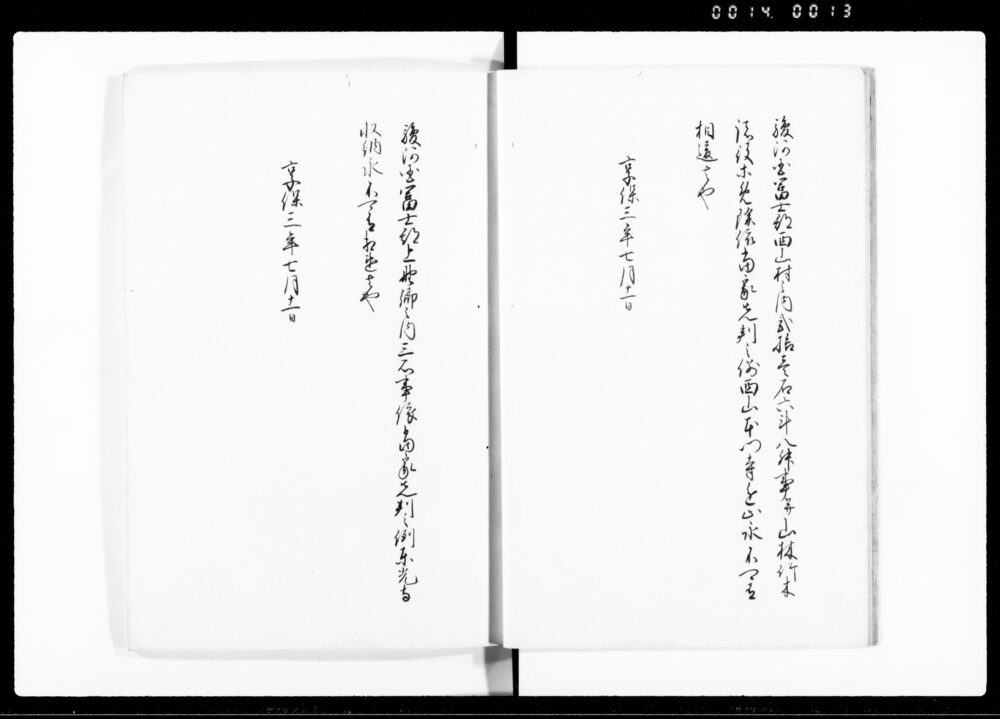 0014. 0013
駿河国富士郡西山村之内弐拾壱石六斗八升事并山林竹木
諸役等免除依当家先判之例西山本門寺進止永不可有
相違者也
享保三年七月十一日
駿河国富士郡上野郷之内三石事依当家先判之例東光寺
収納永不可有相違者也
享保三年七月十一日